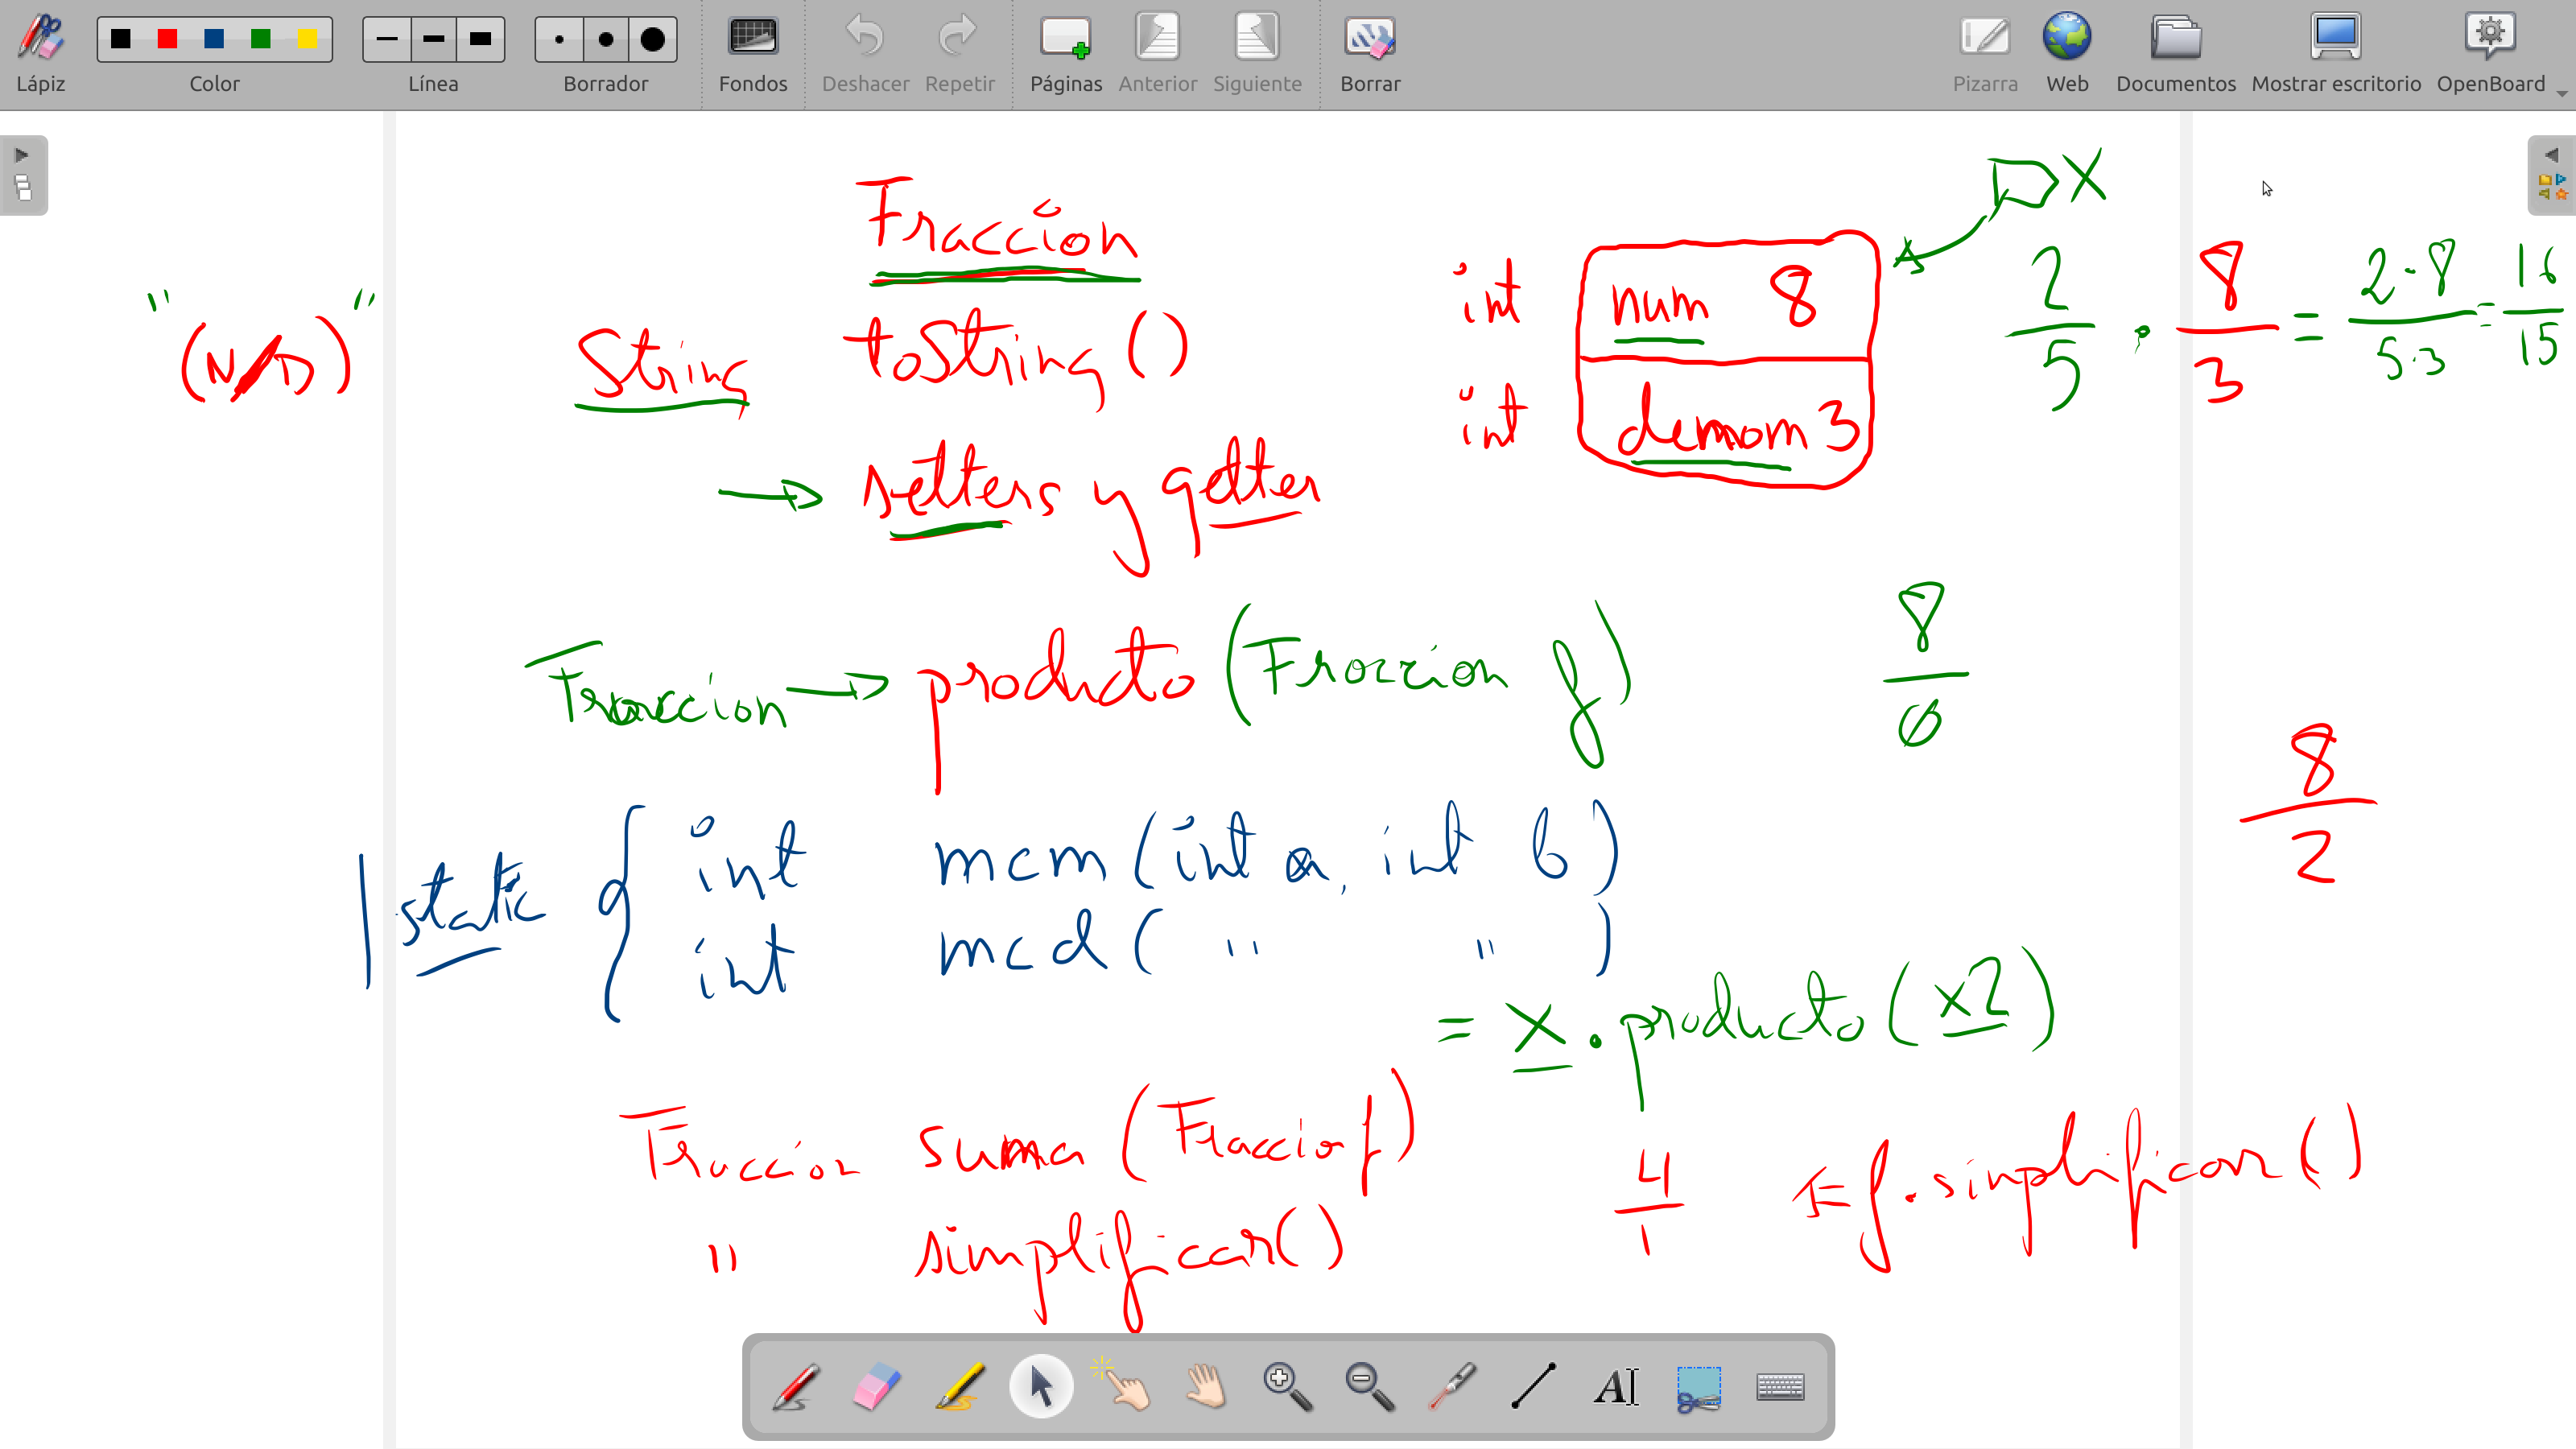 Lápiz Color Línea Borrador Fondos Deshacer Repetir Páginas Anterior Siguiente Borrar Pizarra Web Documentos Mostrar escritorio OpenBoard
Fraccion
X
"(N/D)"
String toString()
int num 8
int denom 3
2/5 · 8/3 = 2·8/5·3 = 16/15
→ setters y getter
Fraccion → producto (Fraccion f)
8/0
8/2
static { int mcm (int a, int b)
int mcd ( " " )
= x.producto(x2)
Fraccion suma (Fraccion f)
" simplificar()
4/1 ← f.simplificar()
AI